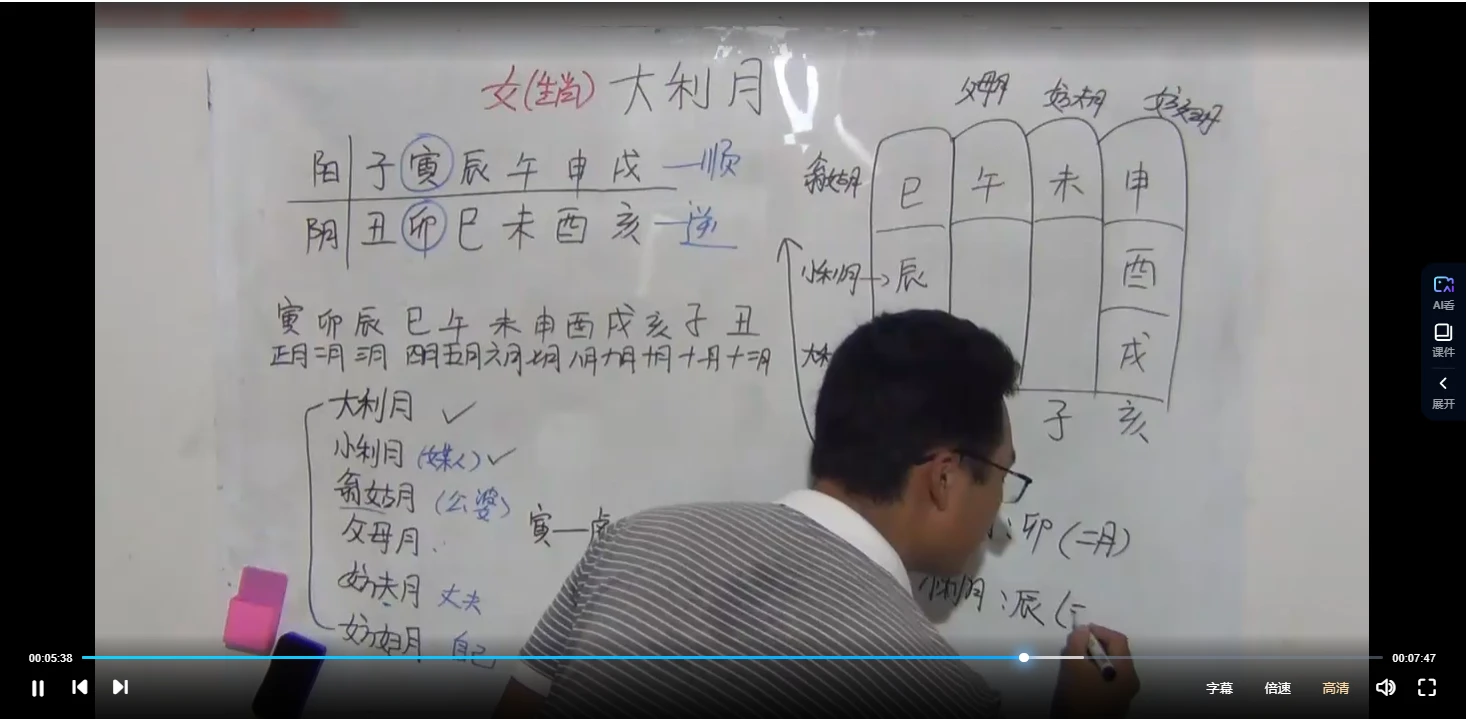 女(生肖)大利月
父母月 妨夫月 妨妇月
阳 子寅辰午申戌—顺
阴 丑卯巳未酉亥—逆
翁姑月 巳 午 未 申
小利月→ 辰 酉
大利 戌
子 亥
寅卯辰巳午未申酉戌亥子丑
正月二月三月四月五月六月七月八月九月十月十一月十二月
大利月 ✓
小利月(媒人)✓
翁姑月(公婆)
父母月
妨夫月 丈夫
妨妇月 自己
寅—虎
:卯(二月)
小利月:辰(三
AI看
课件
展开
00:05:38
00:07:47
字幕 倍速 高清